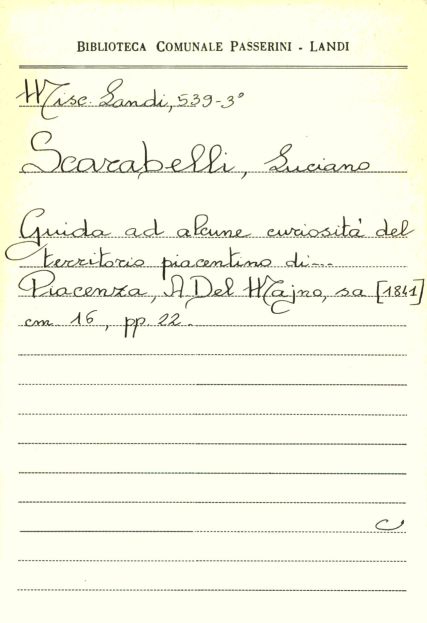 BIBLIOTECA COMUNALE PASSERINI - LANDI
Misc. Landi, 539-3°
Scarabelli, Luciano
Guida ad alcune curiosità del
territorio piacentino di---
Piacenza, A Del Majno, sa [1841]
cm 16, pp. 22.
C